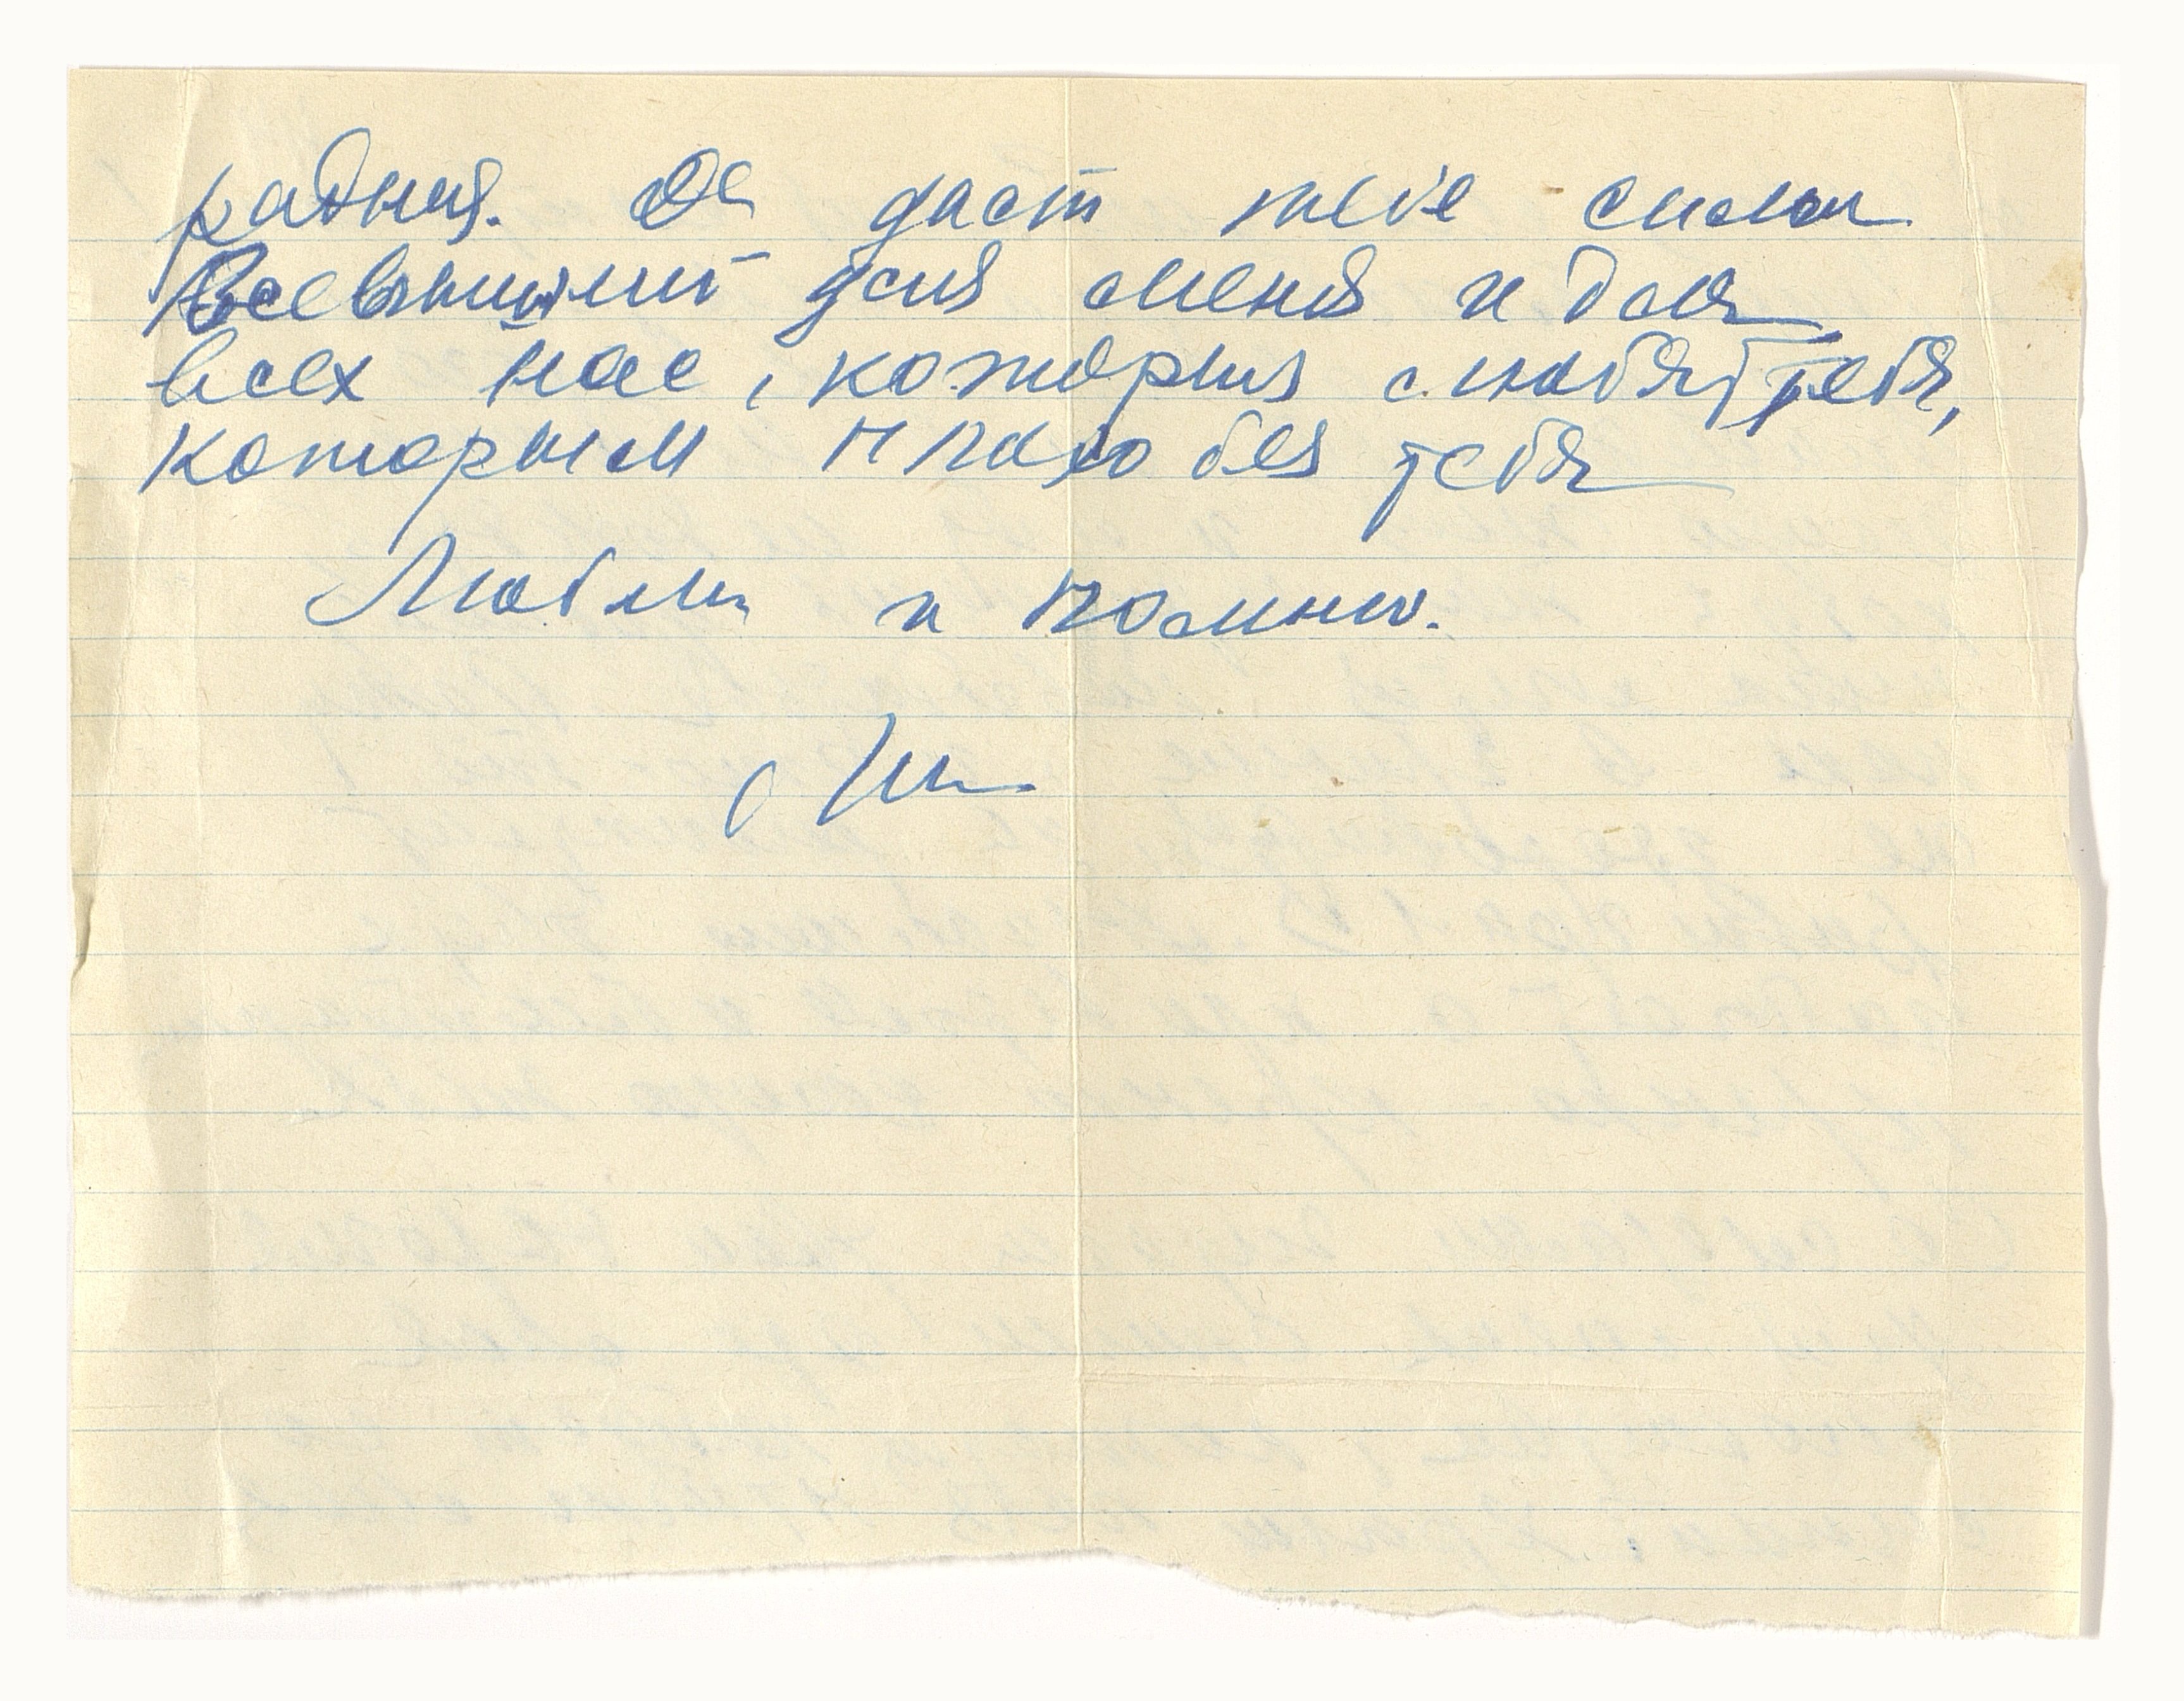 родная. Да даст тебе силы
Всевышний для меня и для
всех нас, которыя любят тебя,
которым плохо без тебя
Люблю и помню.